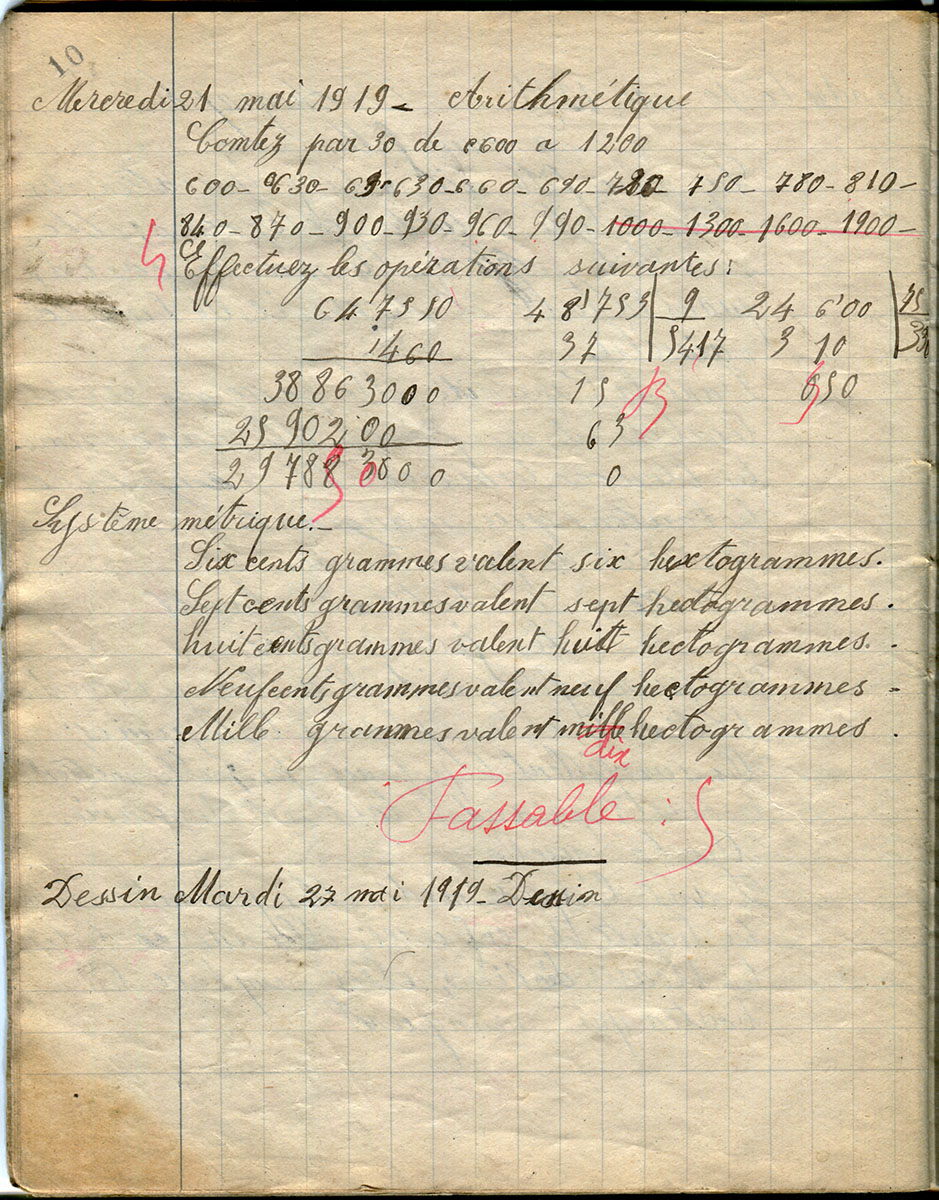 10
Mercredi 21 mai 1919 - Arithmétique
Comtez par 30 de 600 a 1200
600 - 630 - 630 - 660 - 690 - 720 - 750 - 780 - 810 -
840 - 870 - 900 - 930 - 960 - 990 - 1000 - 1300 - 1600 - 1900 -
Effectuez les opérations suivantes :
647550 48'753 9 24 6'00 75
460 37 5417 3 10
3886 3000 15 850
25 902 00 63
29788 3000 0 0
Système métrique. -
Six cents grammes valent six hextogrammes.
Sept cents grammes valent sept hectogrammes.
huit cents grammes valent huit hectogrammes. -
Neuf cents grammes valent neuf hectogrammes -
Mille grammes valent mille hectogrammes.
dix
Passable : 5
Dessin Mardi 27 mai 1919 - Dessin